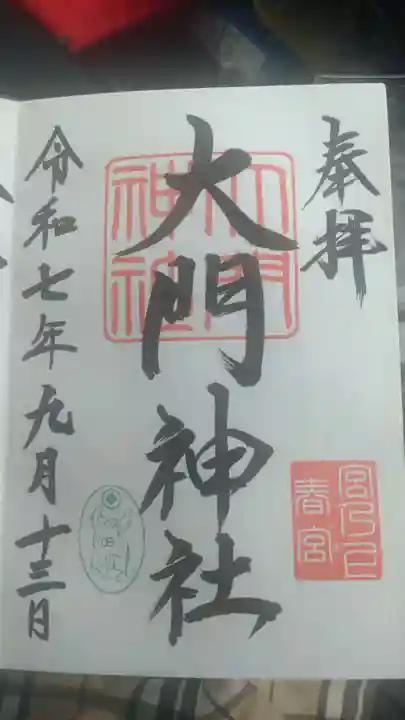 奉拝
大門神社
令和七年九月十三日
大門
神社
春宮